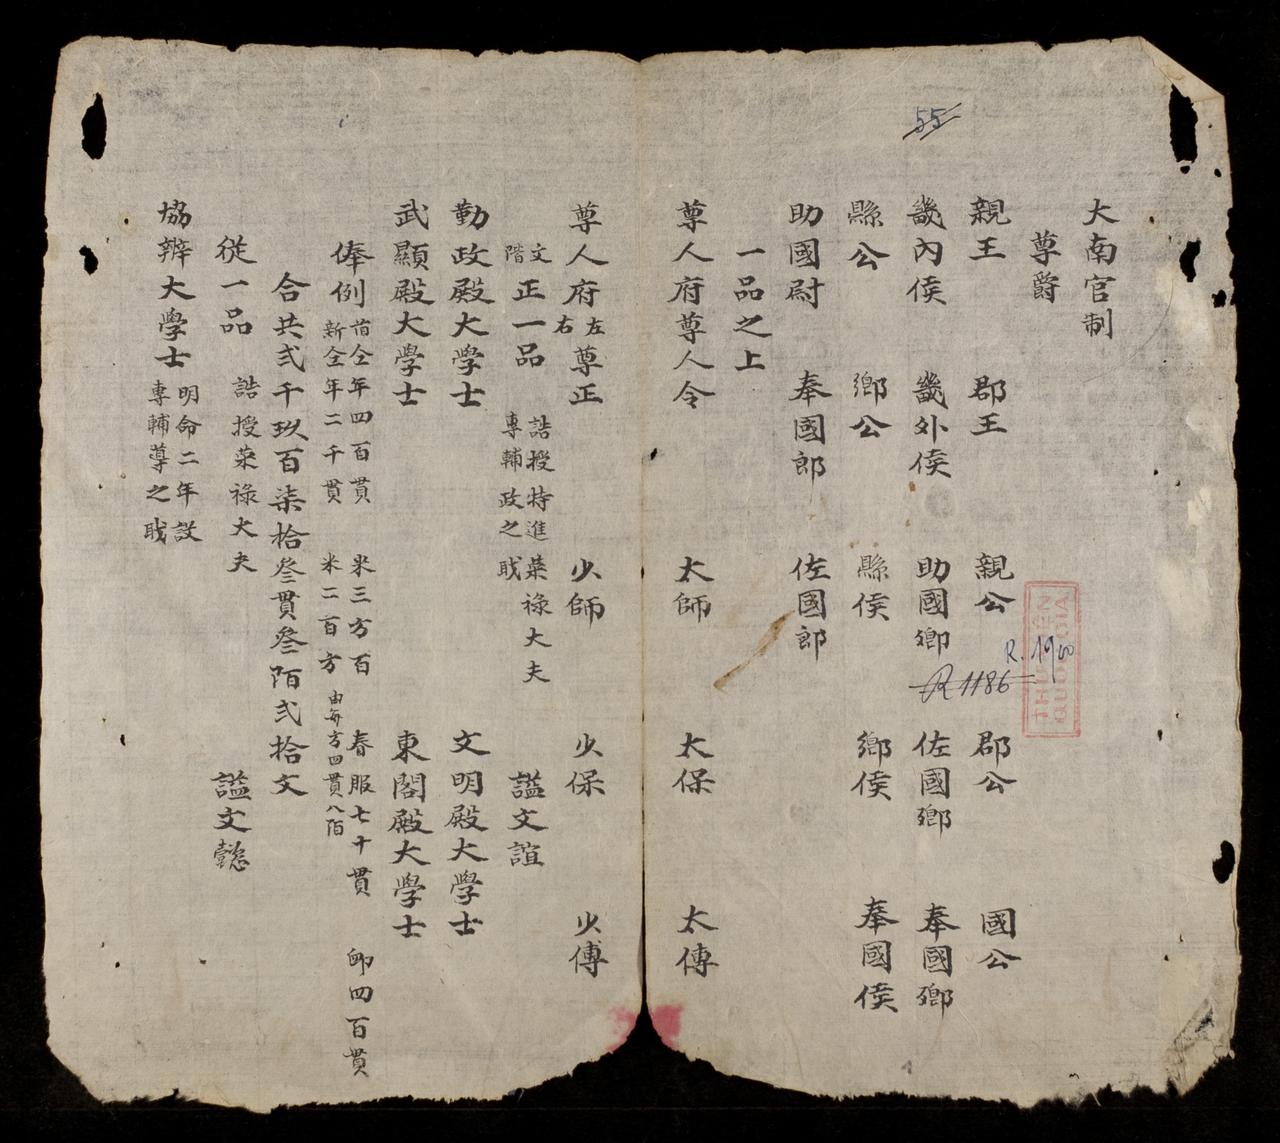 55
大南官制
尊爵
親王 郡王 親公 郡公 國公
畿內侯 畿外侯 助國鄉 佐國鄉 奉國鄉
縣公 鄉公 縣侯 鄉侯 奉國侯
助國尉 奉國郎 佐國郎
一品之上
尊人府尊人令 太師 太保 太傅
尊人府左右尊正 少師 少保 少傅
文階正一品 誥授特進荣祿大夫 專輔政之戢 諡文誼
勤政殿大學士 文明殿大學士
武顯殿大學士 東閣殿大學士
俸例 仝年四百貫 米三方百 春服七十貫 四百貫
新仝年二千貫 米二百方 由每方四貫八陌
合共弍千玖百柒拾叁貫叁陌弍拾文
從一品 誥授荣祿大夫 諡文懿
協辨大學士 明命二年設 專輔導之戢
R. 198
R 1186
THU VIEN
QUOC GIA